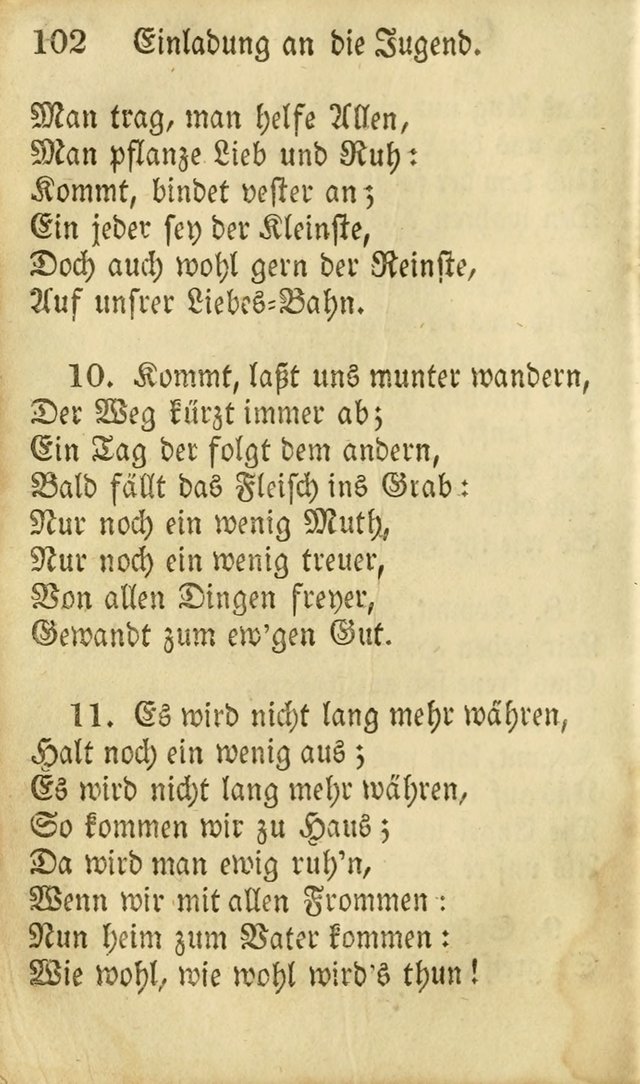 102 Einladung an die Jugend.
Man trag, man helfe Allen,
Man pflanze Lieb und Ruh:
Kommt, bindet vester an;
Ein jeder sey der Kleinste,
Doch auch wohl gern der Reinste,
Auf unsrer Liebes-Bahn.
10. Kommt, laßt uns munter wandern,
Der Weg kürzt immer ab;
Ein Tag der folgt dem andern,
Bald fällt das Fleisch ins Grab:
Nur noch ein wenig Muth,
Nur noch ein wenig treuer,
Von allen Dingen freyer,
Gewandt zum ew'gen Gut.
11. Es wird nicht lang mehr währen,
Halt noch ein wenig aus;
Es wird nicht lang mehr währen,
So kommen wir zu Haus;
Da wird man ewig ruh'n,
Wenn wir mit allen Frommen:
Nun heim zum Vater kommen:
Wie wohl, wie wohl wird's thun!